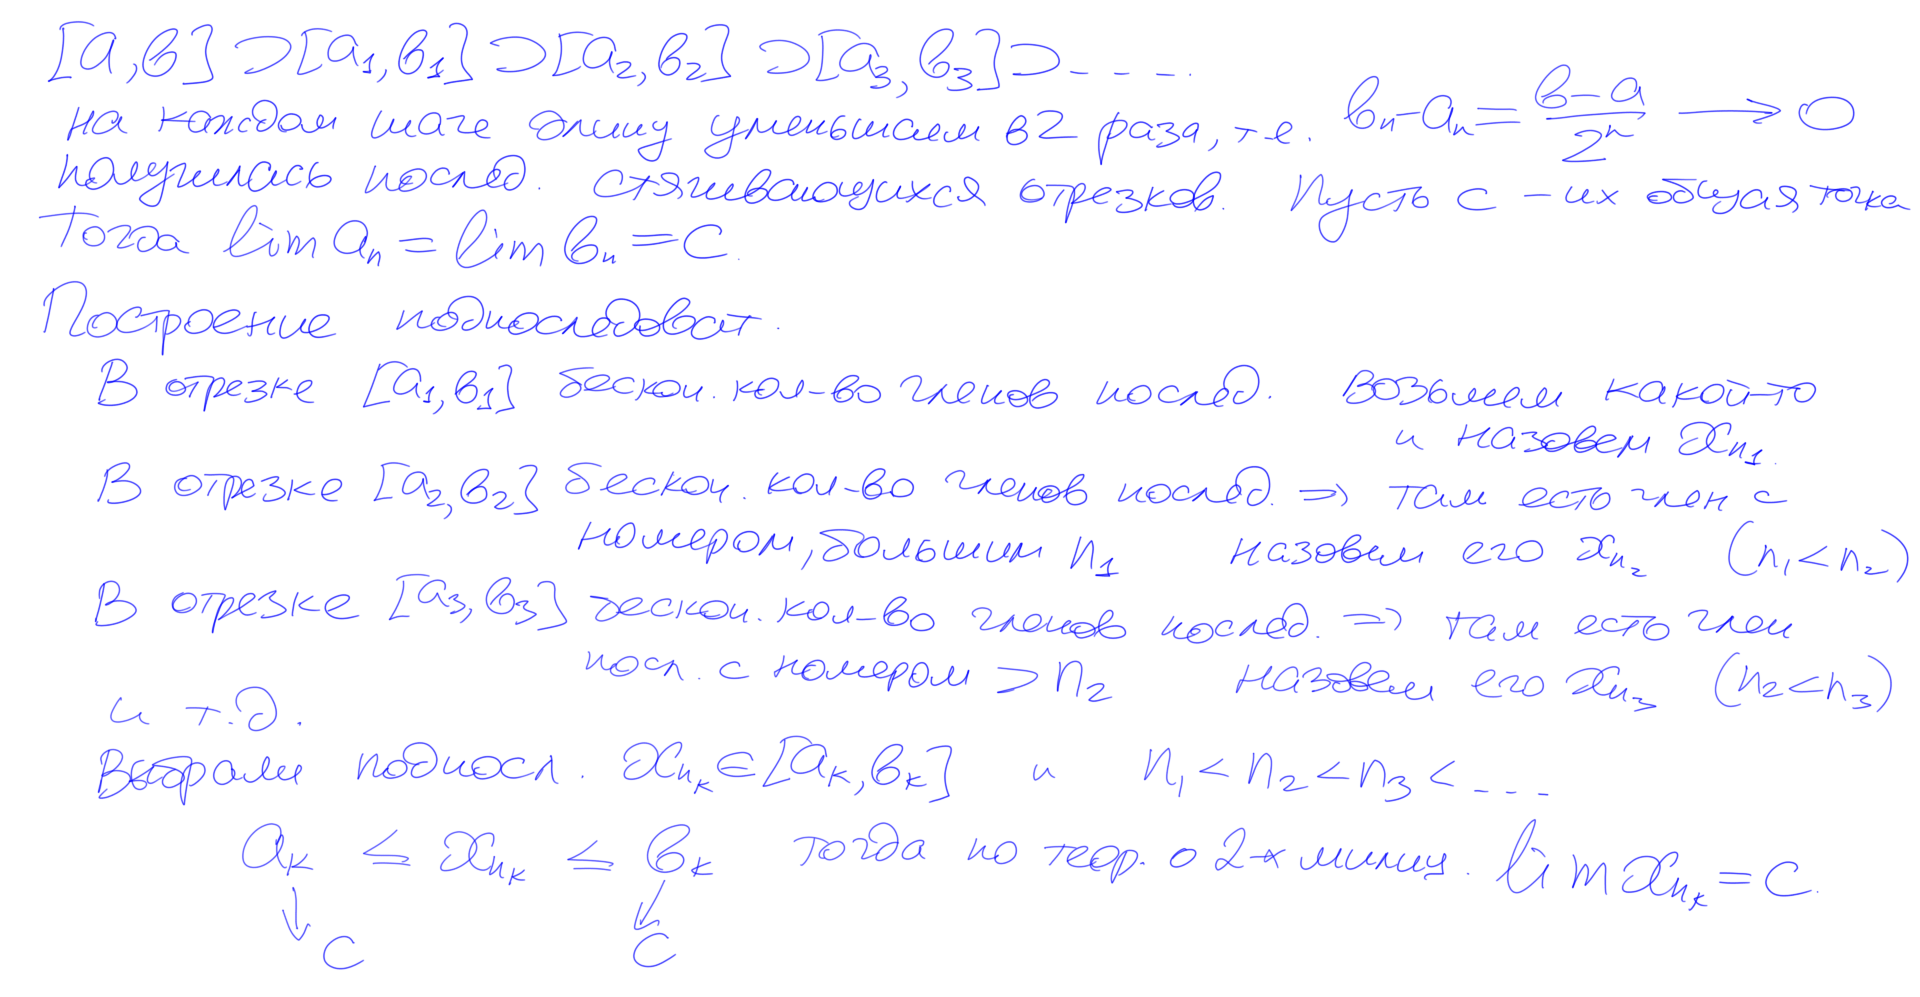 [a,в] ⊃ [a₁,в₁] ⊃ [a₂,в₂] ⊃ [a₃,в₃] ⊃ - - - .
на каждом шаге длину уменьшаем в 2 раза, т.е. вₙ-aₙ = (в-a)/2ⁿ → 0
получилась послед. стягивающихся отрезков. Пусть c - их общая точка
Тогда lim aₙ = lim вₙ = c.
Построение подпоследоват.
В отрезке [a₁,в₁] бескон. кол-во членов послед. возьмем какой-то
и назовем x_{n₁}.
В отрезке [a₂,в₂] бескон. кол-во членов послед. => там есть член с
номером, большим n₁ назовем его x_{n₂} (n₁<n₂)
В отрезке [a₃,в₃] бескон. кол-во членов послед. => там есть член
посл. с номером > n₂ назовем его x_{n₃} (n₂<n₃)
и т.д.
Выбрали подпосл. x_{nₖ} ∈ [aₖ,вₖ] и n₁ < n₂ < n₃ < - - -
aₖ ≤ x_{nₖ} ≤ вₖ тогда по теор. о 2-х милиц. lim x_{nₖ} = c.
↓ c ↓ c